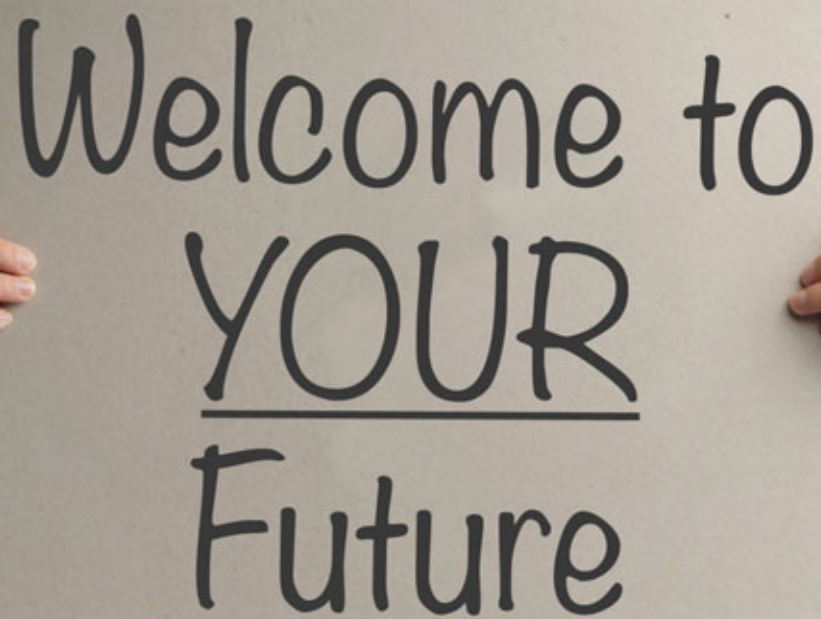 Welcome to
YOUR
Future